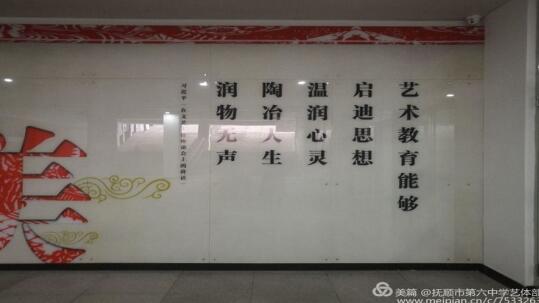 艺术教育能够
启迪思想
温润心灵
陶冶人生
润物无声
美
美篇 @抚顺市第六中学艺体部
www.meipian.cn/c/753326